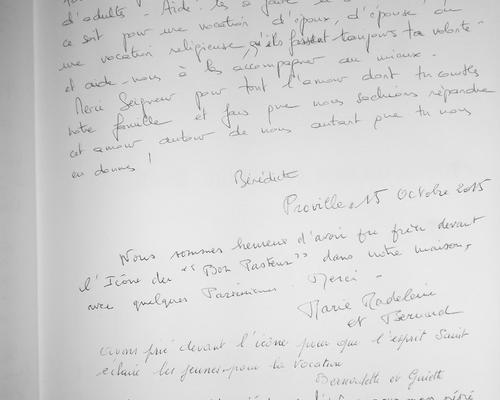 d'adultes - Aide-les à faire
ce soit pour une vocation d'époux, d'épouse ou
une vocation religieuse, qu'ils fassent toujours ta volonté -
et aide-nous à les accompagner au mieux.
Merci Seigneur pour tout l'amour dont tu combles
notre famille et fais que nous sachions répandre
cet amour autour de nous autant que tu nous
en donnes !
Bénédicte
Proville, 15 Octobre 2015
Nous sommes heureux d'avoir pu prier devant
l'Icône du "Bon Pasteur" dans notre maison,
avec quelques Paroissiens. Merci -
Marie Madeleine
et Bernard
avons prié devant l'icône pour que l'esprit Saint
éclaire les jeunes pour la vocation
Bernadette et Guiette